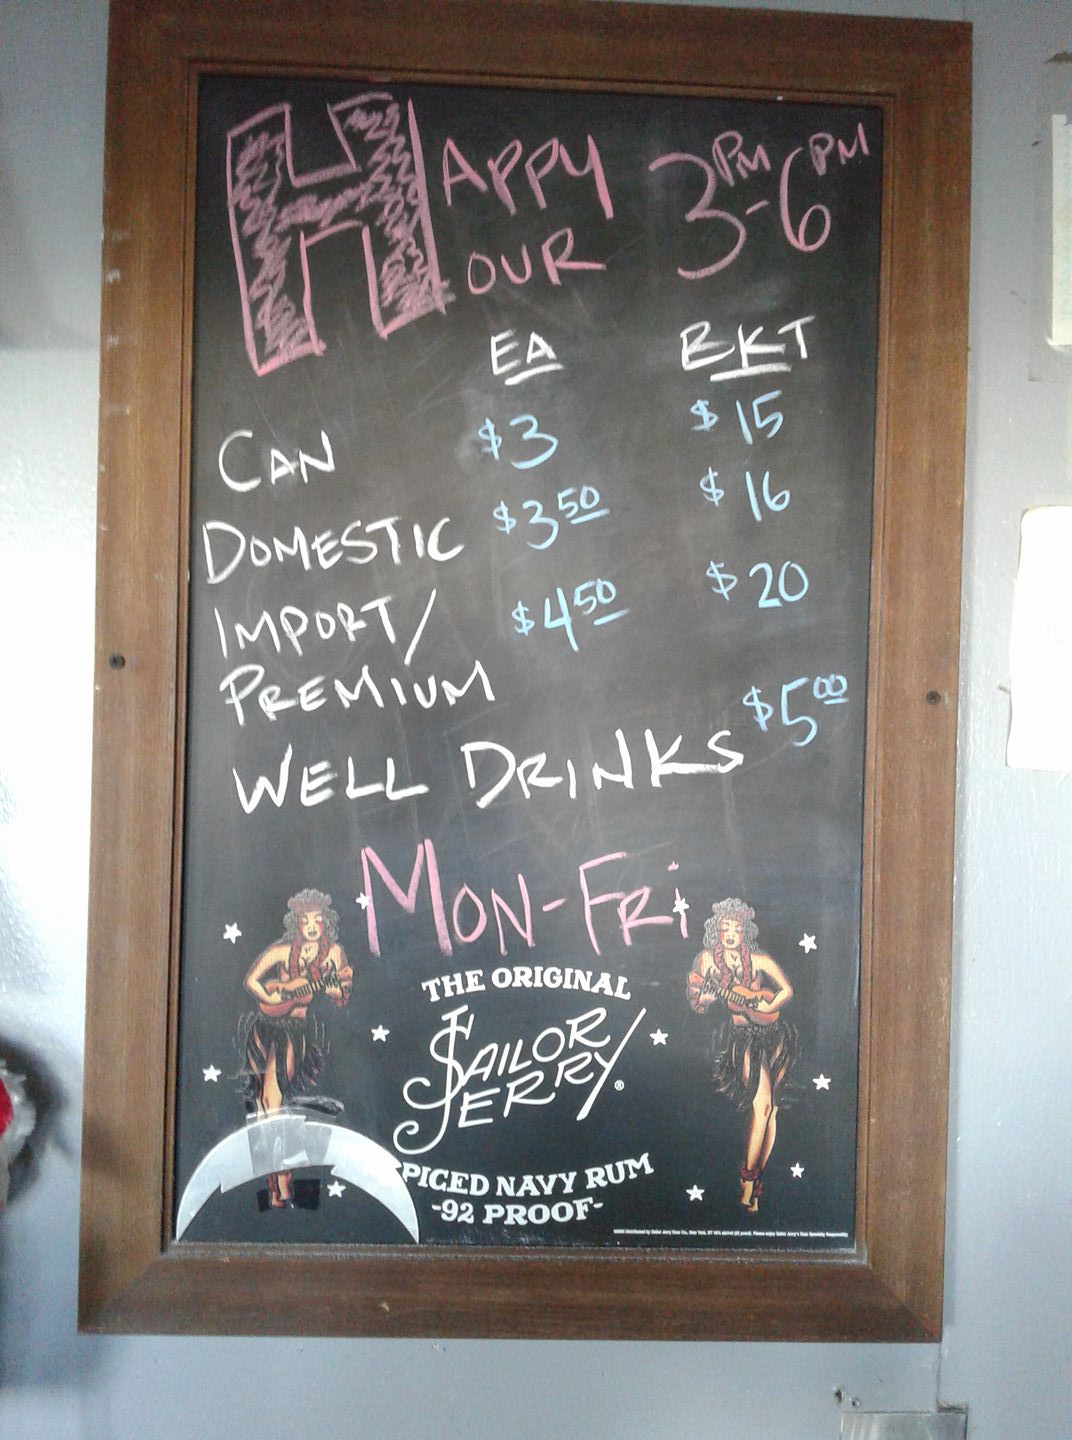 HAPPY HOUR 3PM-6PM
EA BKT
CAN $3 $15
DOMESTIC $3.50 $16
IMPORT/ $4.50 $20
PREMIUM
WELL DRINKS $5.00
MON-FRi
THE ORIGINAL
SAILOR
JERRY®
PICED NAVY RUM
-92 PROOF-